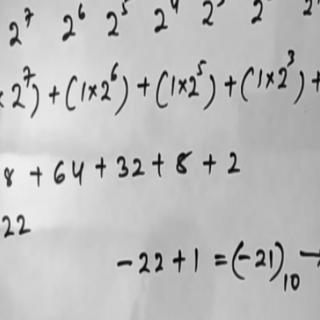 2⁷ 2⁶ 2⁵ 2⁴ 2
×2⁷) + (1×2⁶) + (1×2⁵) + (1×2³) +
8 + 64 + 32 + 8 + 2
22
-22 + 1 = (-21)₁₀ →